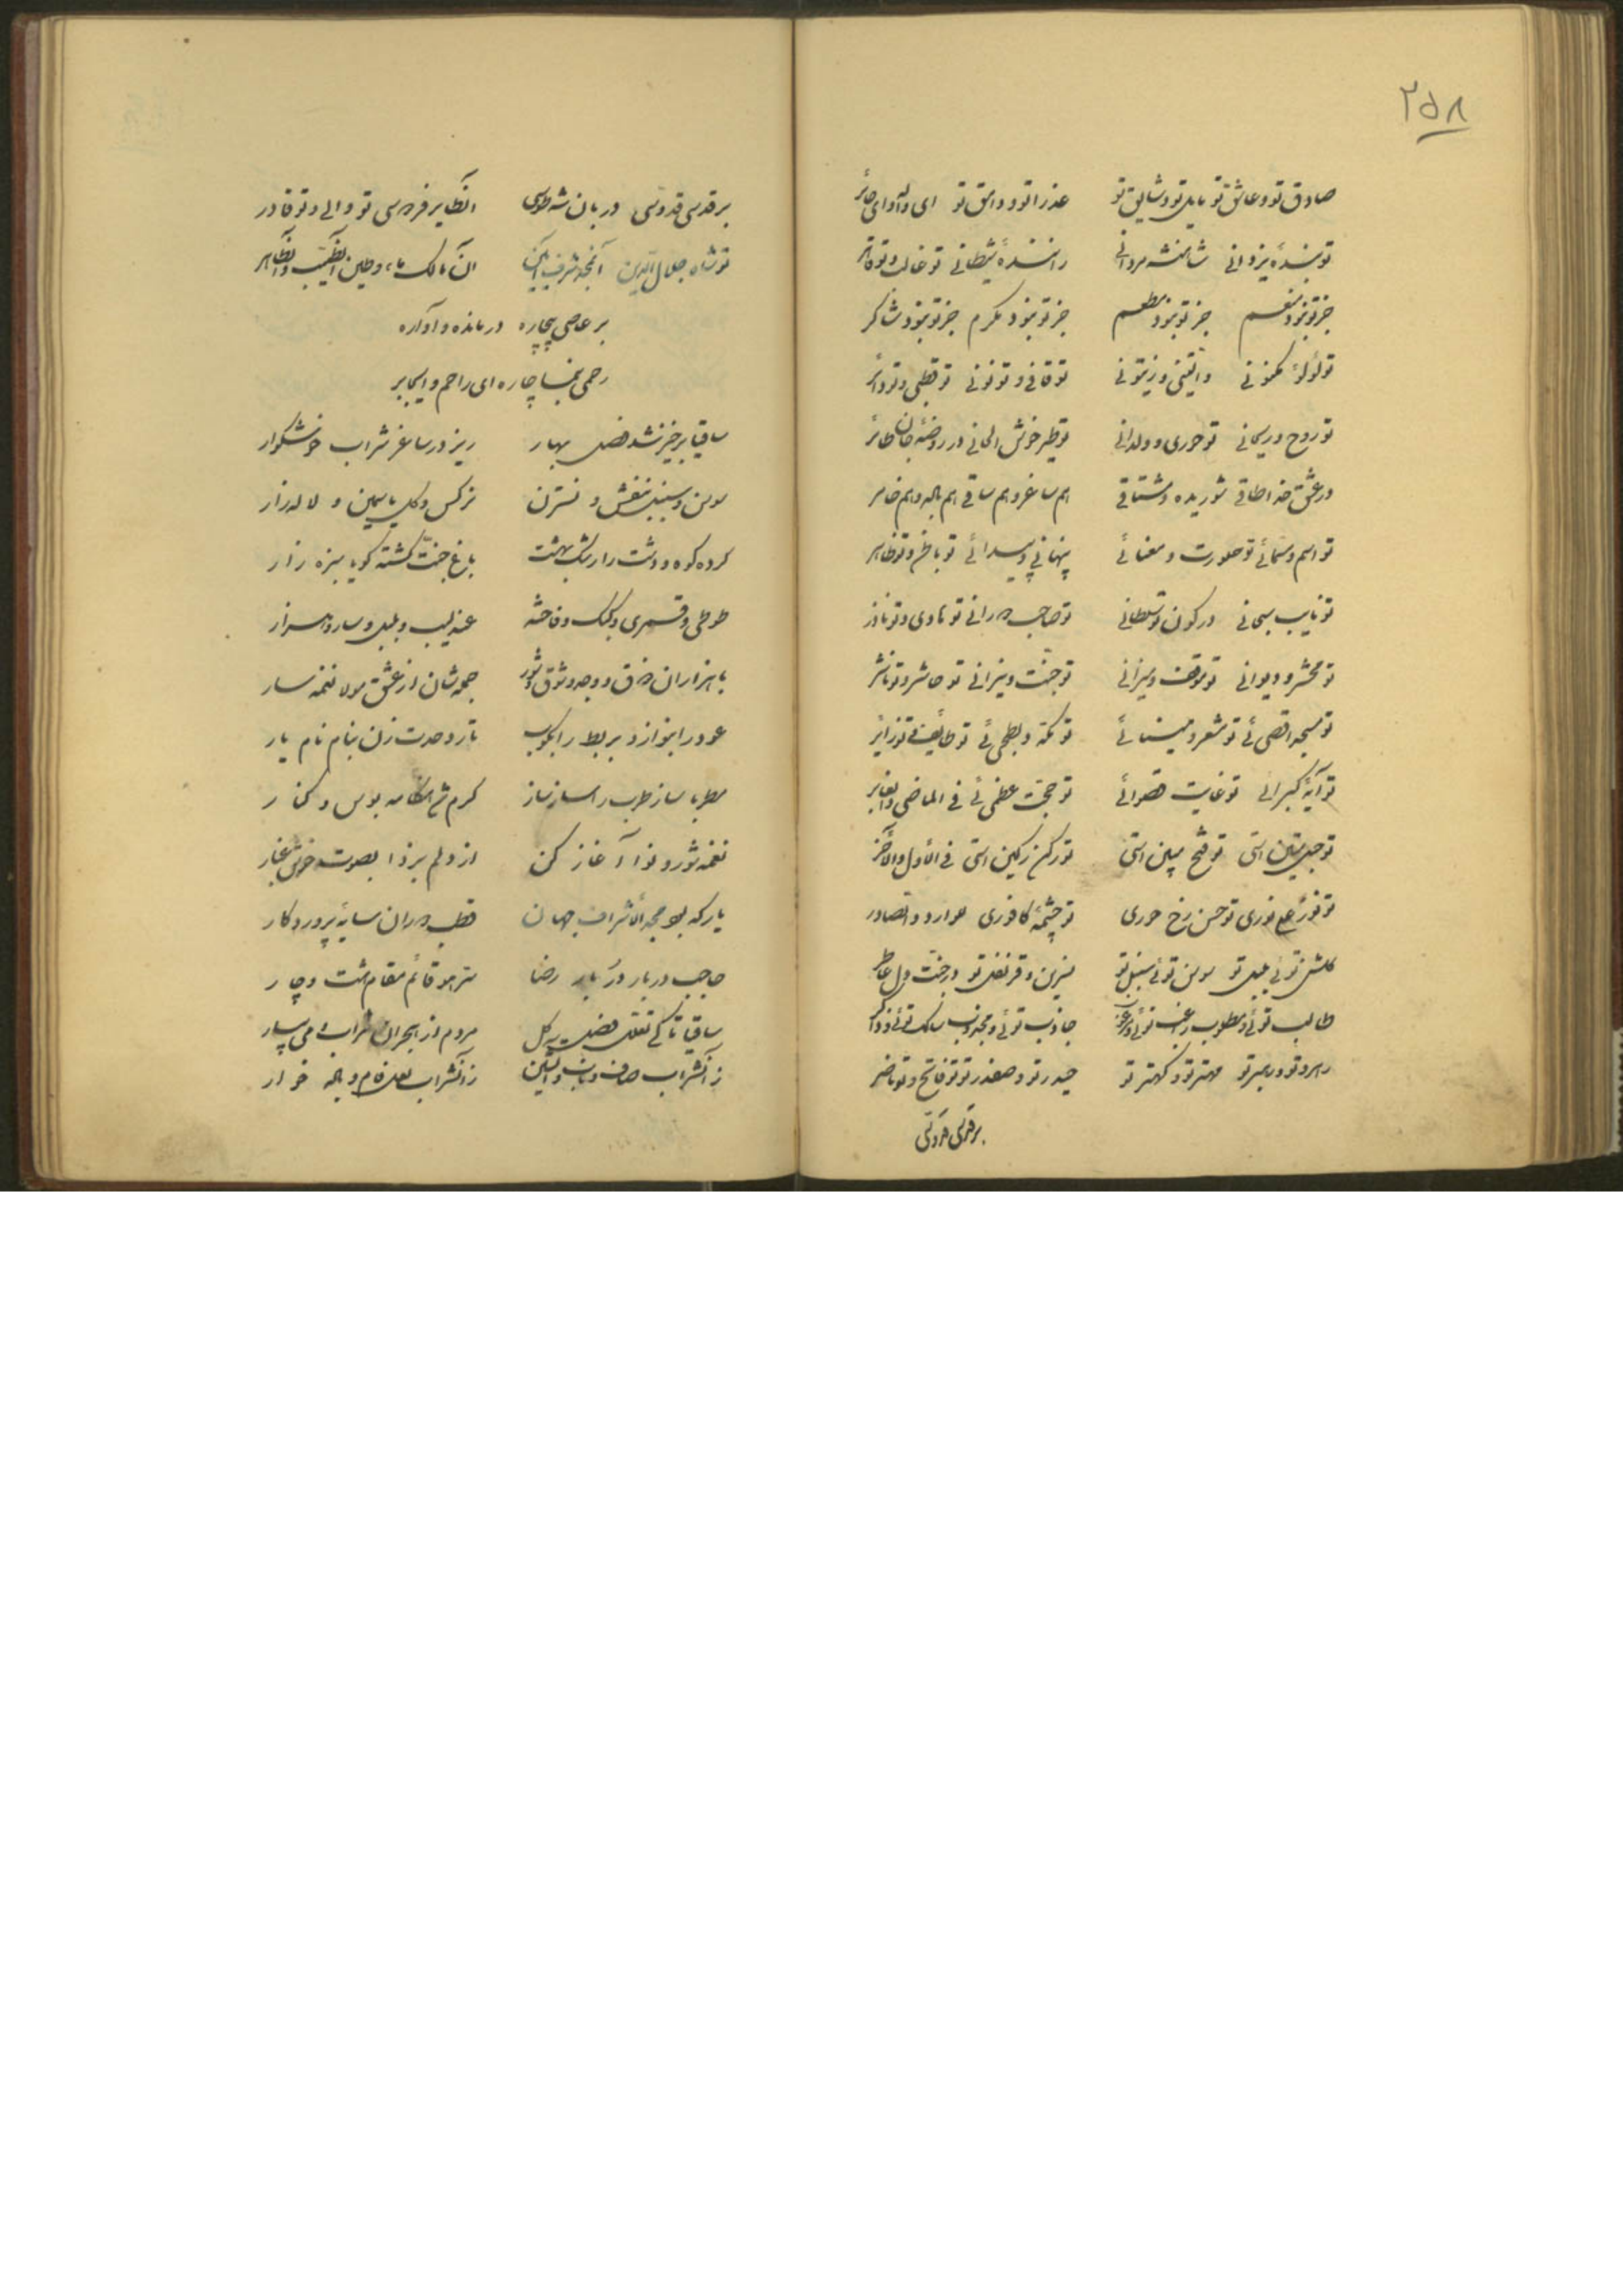 ۲۵۸
صادق تو و عاشق تو مایل تو و شایق تو عذرا تو و وامق تو ای واله و ای حائر
تو بندهٔ یزدانی شاهنشه مردانی رانندهٔ شیطانی تو غالب و تو قاهر
جز تو نبود منعم جز تو نبود مطعم جز تو نبود مکرم جز تو نبود شاکر
تو لؤلؤ مکنونی والتینی و زیتونی تو قافی و تو نونی تو قطبی و تو دائر
تو روح و ریحانی تو حوری و ولدانی تو طیر خوش الحانی در روضهٔ جان طائر
در عشق خدا طاقی شوریده و مشتاقی هم ساغر و هم ساقی هم باله و هم خامر
تو اسم و مسمائی تو صورت و معنائی پنهانی و پیدائی تو باطن و تو ظاهر
تو نایب سبحانی در کون تو سلطانی تو صاحب دورانی تو هادی و تو
تو محشر و دیوانی تو موقف و میزانی تو جنت و نیرانی تو حاشر و تو ناشر
تو مسجد اقصی ئی تو مشعر و میسنائی تو مکه و بطحی ئی تو طائف و تو زایر
تو آیهٔ کبرائی تو غایت قصوائی تو حجت عظمی ئی فی الماضی و الغابر
تو حبل متین استی تو فتح مبین استی تو رکن رکین استی فی الاول و الآخر
تو نور علی نوری تو حسن رخ حوری تو چشمهٔ کافوری هو وارد و الصادر
گلشن توئی بلبل تو سوسن توئی سنبل تو نسرین و قرنفل تو درجنت دل عاطر
طالب توئی و مطلوب راغب توئی و مرغوب جاذب توئی و مجذوب سالک توئی و ذاکر
رهرو تو و رهبر تو مهتر تو و کهتر تو حیدر تو و صفدر تو تو فاتح و تو ناصر
بر قدسی قدوسی
بر قدسی قدوسی دربان شه طوسی الطایر فردوسی تو والی و تو قادر
تو شاه جلال الدین آن مجد شریف آیین آن مالک ماء و طین الطیب و الطاهر
بر عاصی بیچاره درمانده و آواره
رحمی بنما چاره ای راحم و ای جابر
ساقیا برخیز شد فصل بهار ریز در ساغر شراب خوشگوار
سوسن و سنبل بنفش و نسترن نرگس و گل یاسمین و لاله زار
کرده کوه و دشت را رشک بهشت باغ جنت گشته گویا سبزه زار
طوطی و قمری و کبک و فاخته عندلیب و بلبل و سار و هزار
با هزاران ذوق و وجد و شوق و شور جمله شان از عشق مولا نغمه سار
عود را بنواز و بربط را بکوب تار وحدت زن بنام نام یار
مطربا ساز طرب را ساز ساز گرم شد هنگامه بوس و کنار
نغمه شور و نوا آغاز کن از دلم بر دا بصوت خوش غبار
یار که بود مجد الاشراف جهان قطب دوران سایهٔ پروردگار
حاجب دربار دربار رضا سر هو قائم مقام هشت و چار
ساقیا تا کی تعلل فصل گل مردم از هجران شراب می بیار
زان شراب صاف و ناب و آتشین زان شراب لعل فام و باده خوار